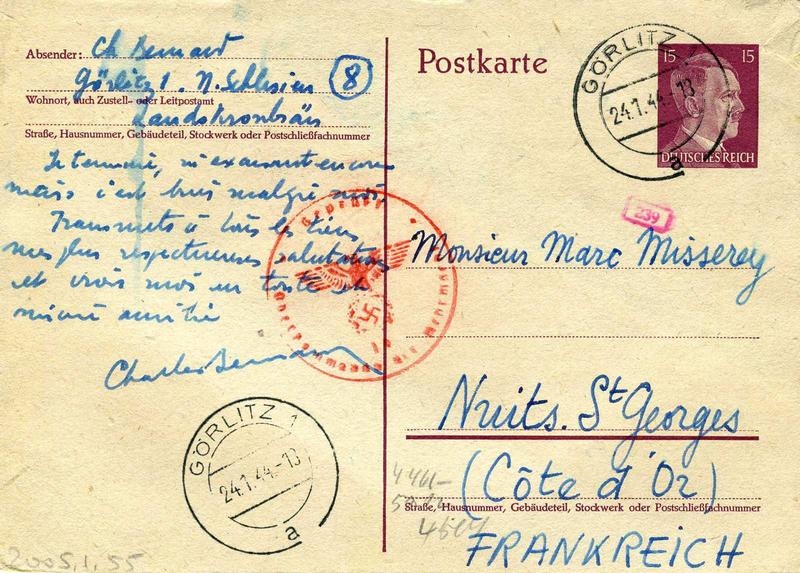 Absender: Ch Bernard
Görlitz 1. N. Schlesien
8
Wohnort, auch Zustell- oder Leitpostamt
Landskronbräu
Straße, Hausnummer, Gebäudeteil, Stockwerk oder Postschließfachnummer
Je termine, en
mais c'est malgré moi.
Transmets à tous les tiens
mes plus respectueuses salutations
et crois moi en toute
amitié
Charles Bernard
Postkarte
GÖRLITZ 1
24.1.44.-13
a
15 15
DEUTSCHES REICH
239
Geprüft
Oberkommando der Wehrmacht
Monsieur Marc Misserey
Nuits. St Georges
(Côte d'Or)
Straße, Hausnummer, Gebäudeteil, Stockwerk oder Postschließfachnummer
FRANKREICH
GÖRLITZ 1
24.1.44.-13
a
2005.1.55